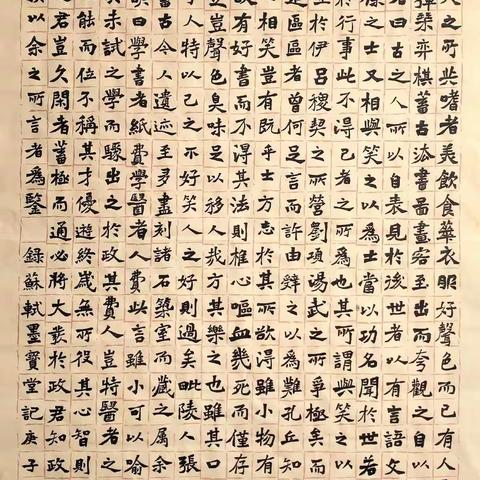 人之所共嗜者美飲食華衣服好聲色而已有人
彈琴弈棋蓄古法書圖畫客至出而夸觀之自以
者曰古之人所以自表見於後世者以有言語文
傑之士又相與笑之以為士當以功名聞於世若
於行事此不得已者之所為也其所謂與笑之以
於伊呂稷契之所營劉項湯武之所爭極矣而
是區區者曾何足言而許由辭之以為難孔丘知
相笑豈有既乎士方志於其所欲得雖小物有
故有好書而不得其法則椎心嘔血幾死而僅存
豈聲色臭味足以移人哉方其樂之也雖其口
人特以己之不好笑人之好則過矣毗陵人張
古今人遺迹至多盡刻諸石築室而藏之屬余
曰學書者紙費學醫者人費此言雖小可以喻
未試之學而驟出之於政其費人豈特醫者之
能而位不稱其才優遊終歲無所役其心智則
君豈久閑者蓄極而通必將大發於政君知政
以余之所言者為鑒 錄蘇軾墨寶堂記庚子